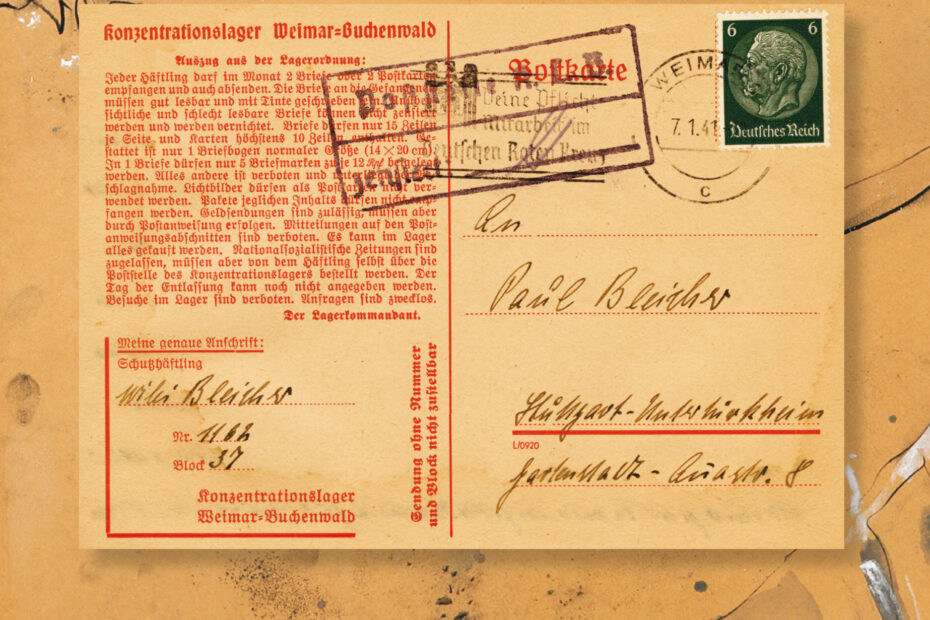 Konzentrationslager Weimar-Buchenwald
Auszug aus der Lagerordnung:
Jeder Häftling darf im Monat 2 Briefe oder 2 Postkarten
empfangen und auch absenden. Die Briefe an die Gefangenen
müssen gut lesbar und mit Tinte geschrieben sein. Unüber-
sichtliche und schlecht lesbare Briefe können nicht zensiert
werden und werden vernichtet. Briefe dürfen nur 15 Zeilen
je Seite, und Karten höchstens 10 Zeilen enthalten. Ge-
stattet ist nur 1 Briefbogen normaler Größe (14×20 cm).
In 1 Briefe dürfen nur 5 Briefmarken zu je 12 Rpf beigelegt
werden. Alles andere ist verboten und unterliegt der Be-
schlagnahme. Lichtbilder dürfen als Postkarten nicht ver-
wendet werden. Pakete jeglichen Inhalts dürfen nicht emp-
fangen werden. Geldsendungen sind zulässig, müssen aber
durch Postanweisung erfolgen. Mitteilungen auf den Post-
anweisungsabschnitten sind verboten. Es kann im Lager
alles gekauft werden. Nationalsozialistische Zeitungen sind
zugelassen, müssen aber von dem Häftling selbst über die
Poststelle des Konzentrationslagers bestellt werden. Der
Tag der Entlassung kann noch nicht angegeben werden.
Besuche im Lager sind verboten. Anfragen sind zwecklos.
Der Lagerkommandant.
Meine genaue Anschrift:
Schutzhäftling
Willi Bleicher
Nr. 1162
Block 37
Konzentrationslager
Weimar-Buchenwald
Sendung ohne Nummer
und Block nicht zustellbar
Postkarte
Deine Pflicht
Mitarbeit im
Deutschen Roten Kreuz
WEIMAR
7.1.41
c
6 6
Deutsches Reich
An
Paul Bleicher
Stuttgart-Untertürkheim
L/0920
Gartenstadt-